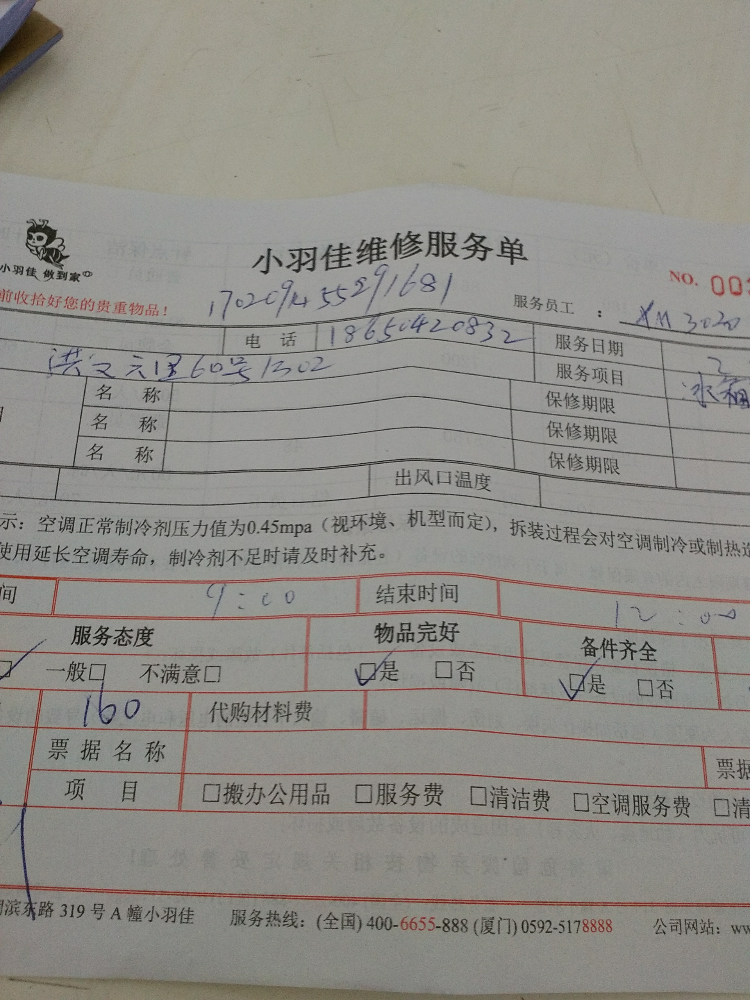 小羽佳维修服务单
小羽佳 做到家
NO. 00
前收拾好您的贵重物品！
170209455291681
服务员工 ： XM3020
电 话 18650420832 服务日期
洪文六里60号1302 服务项目 冰箱
名 称 保修期限
名 称 保修期限
名 称 保修期限
出风口温度
示：空调正常制冷剂压力值为0.45mpa（视环境、机型而定），拆装过程会对空调制冷或制热
使用延长空调寿命，制冷剂不足时请及时补充。
间 9:00 结束时间 12:00
服务态度 物品完好 备件齐全
□ 一般□ 不满意□ □是 □否 □是 □否
160 代购材料费
票据名称 票据
项 目 □搬办公用品 □服务费 □清洁费 □空调服务费 □清
滨东路 319 号 A 幢小羽佳 服务热线：(全国) 400-6655-888 (厦门) 0592-5178888 公司网站：ww